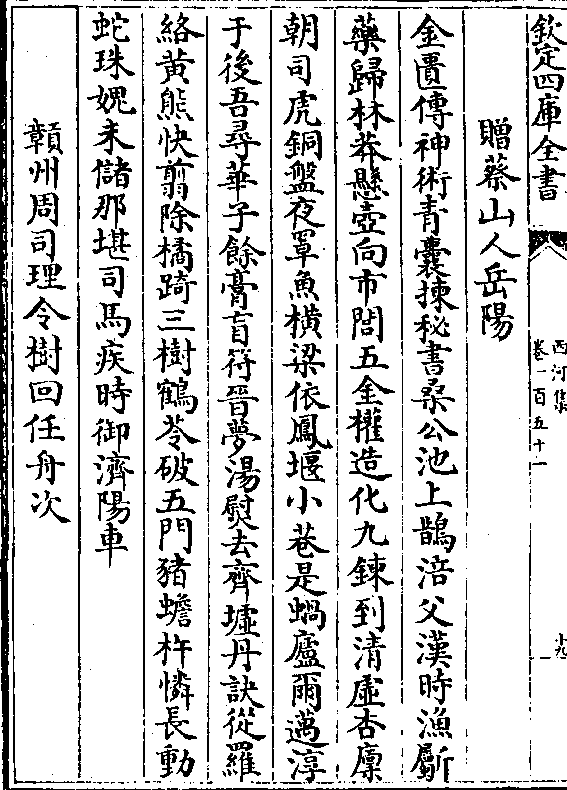 欽定四庫全書
西河集
卷一百五十一
十九
贈蔡山人岳陽
金匱傳神術青囊揀秘書桑公池上鵲涪父漢時漁斸
藥歸林莽懸壺向市閭五金權造化九鍊到清虛杏廩
朝司虎銅盤夜罩魚橫梁依鳳堰小巷是蝸廬爾邁淳
于後吾尋華子餘膏肓符晉夢湯熨去齊墟丹訣從羅
絡黃熊快翦除橘踦三樹鶴苓破五門豬蟾杵憐長動
蛇珠媿未儲那堪司馬疾時御濟陽車
贛州周司理令樹回任舟次